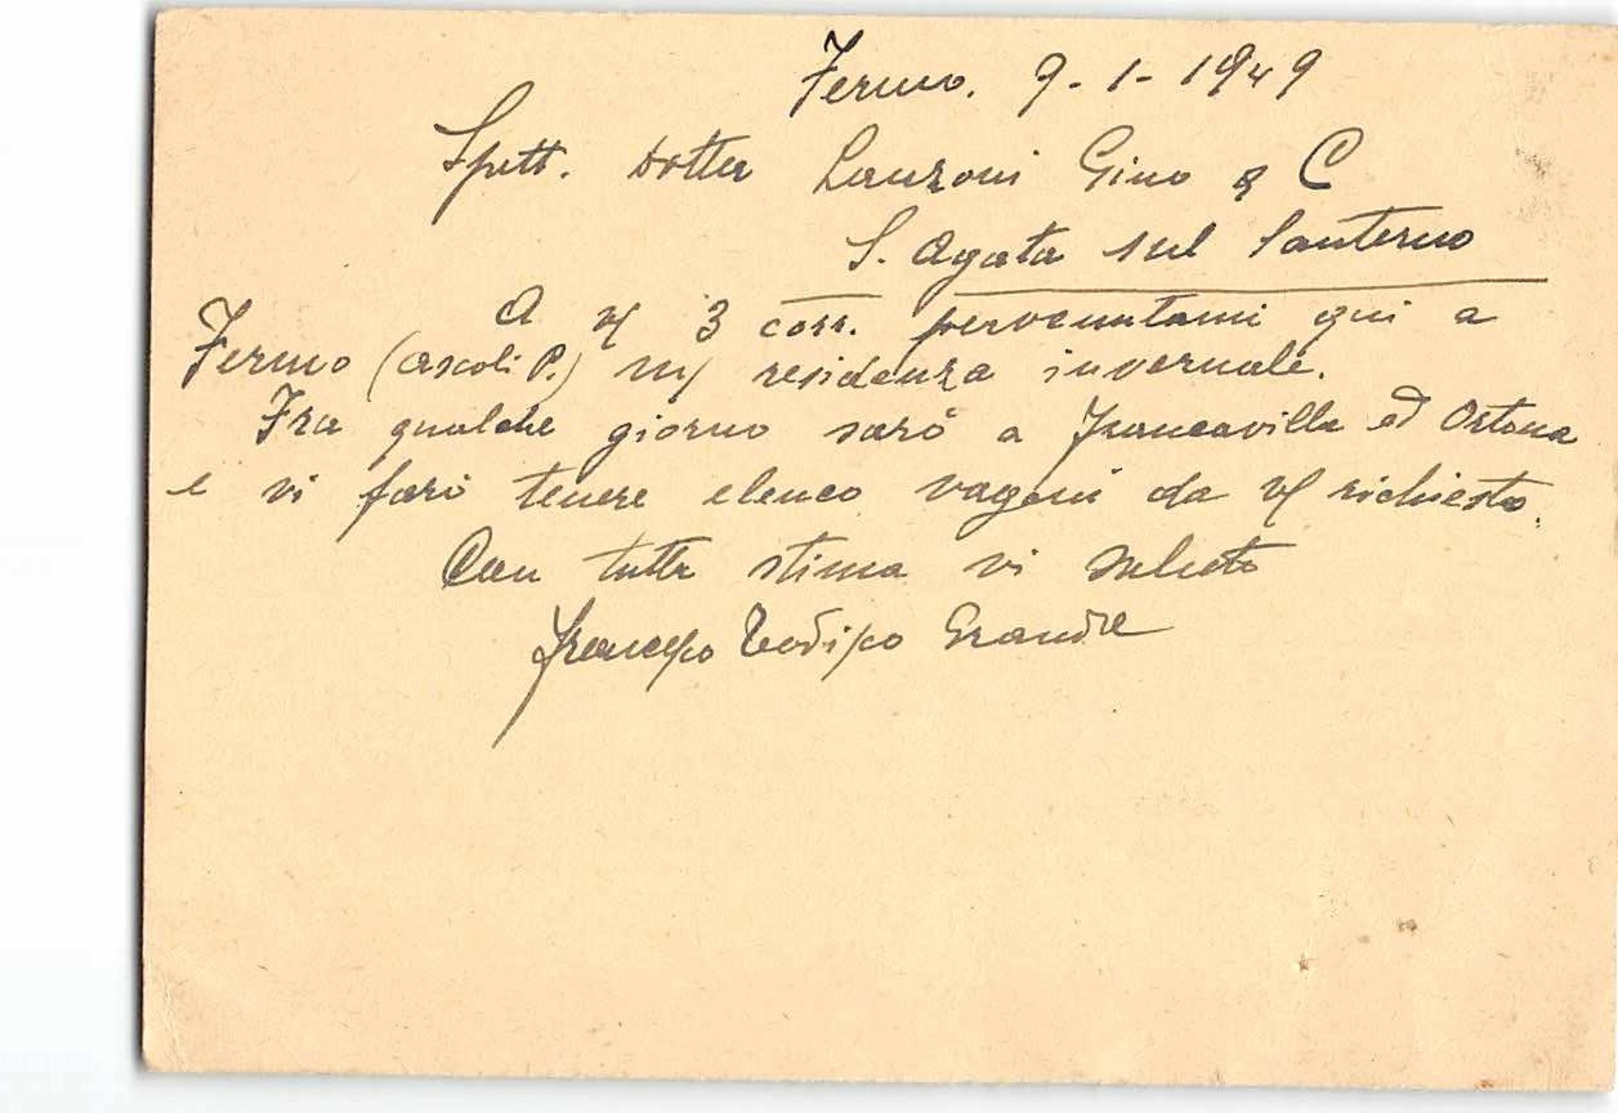 Fermo. 9-1-1949
Spett. Dotter Lanzoni Gino & C
S. Agata sul Santerno
A v/ 3 corr. pervenutami qui a
Fermo (Ascoli P.) m/ residenza invernale.
Fra qualche giorno sarò a Francavilla ed Ortona
e vi farò tenere elenco vagoni da v/ richiesto.
Con tutta stima vi saluto
Francesco Grande